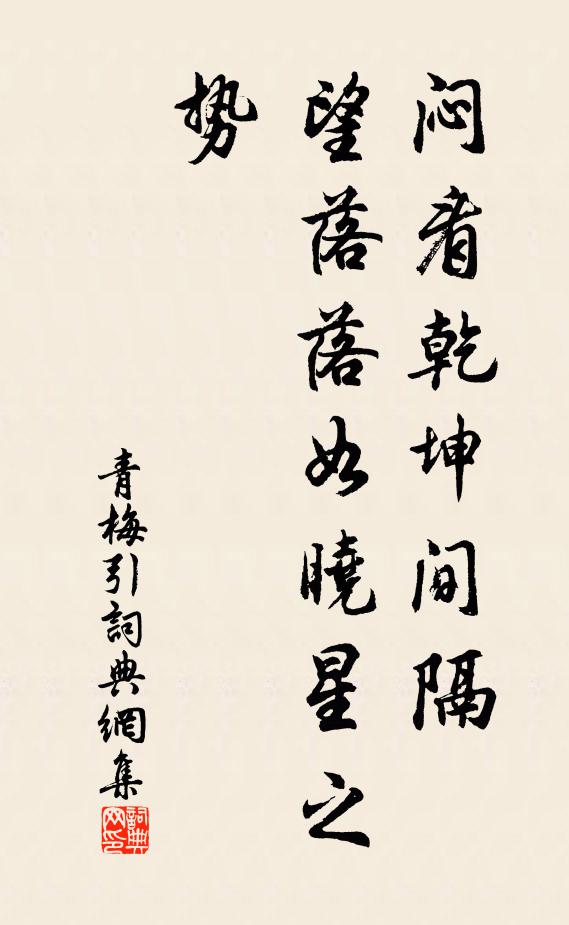 闷看乾坤间隔
望落落如曉星之
势
青梅引詞典網集
詞典
网印